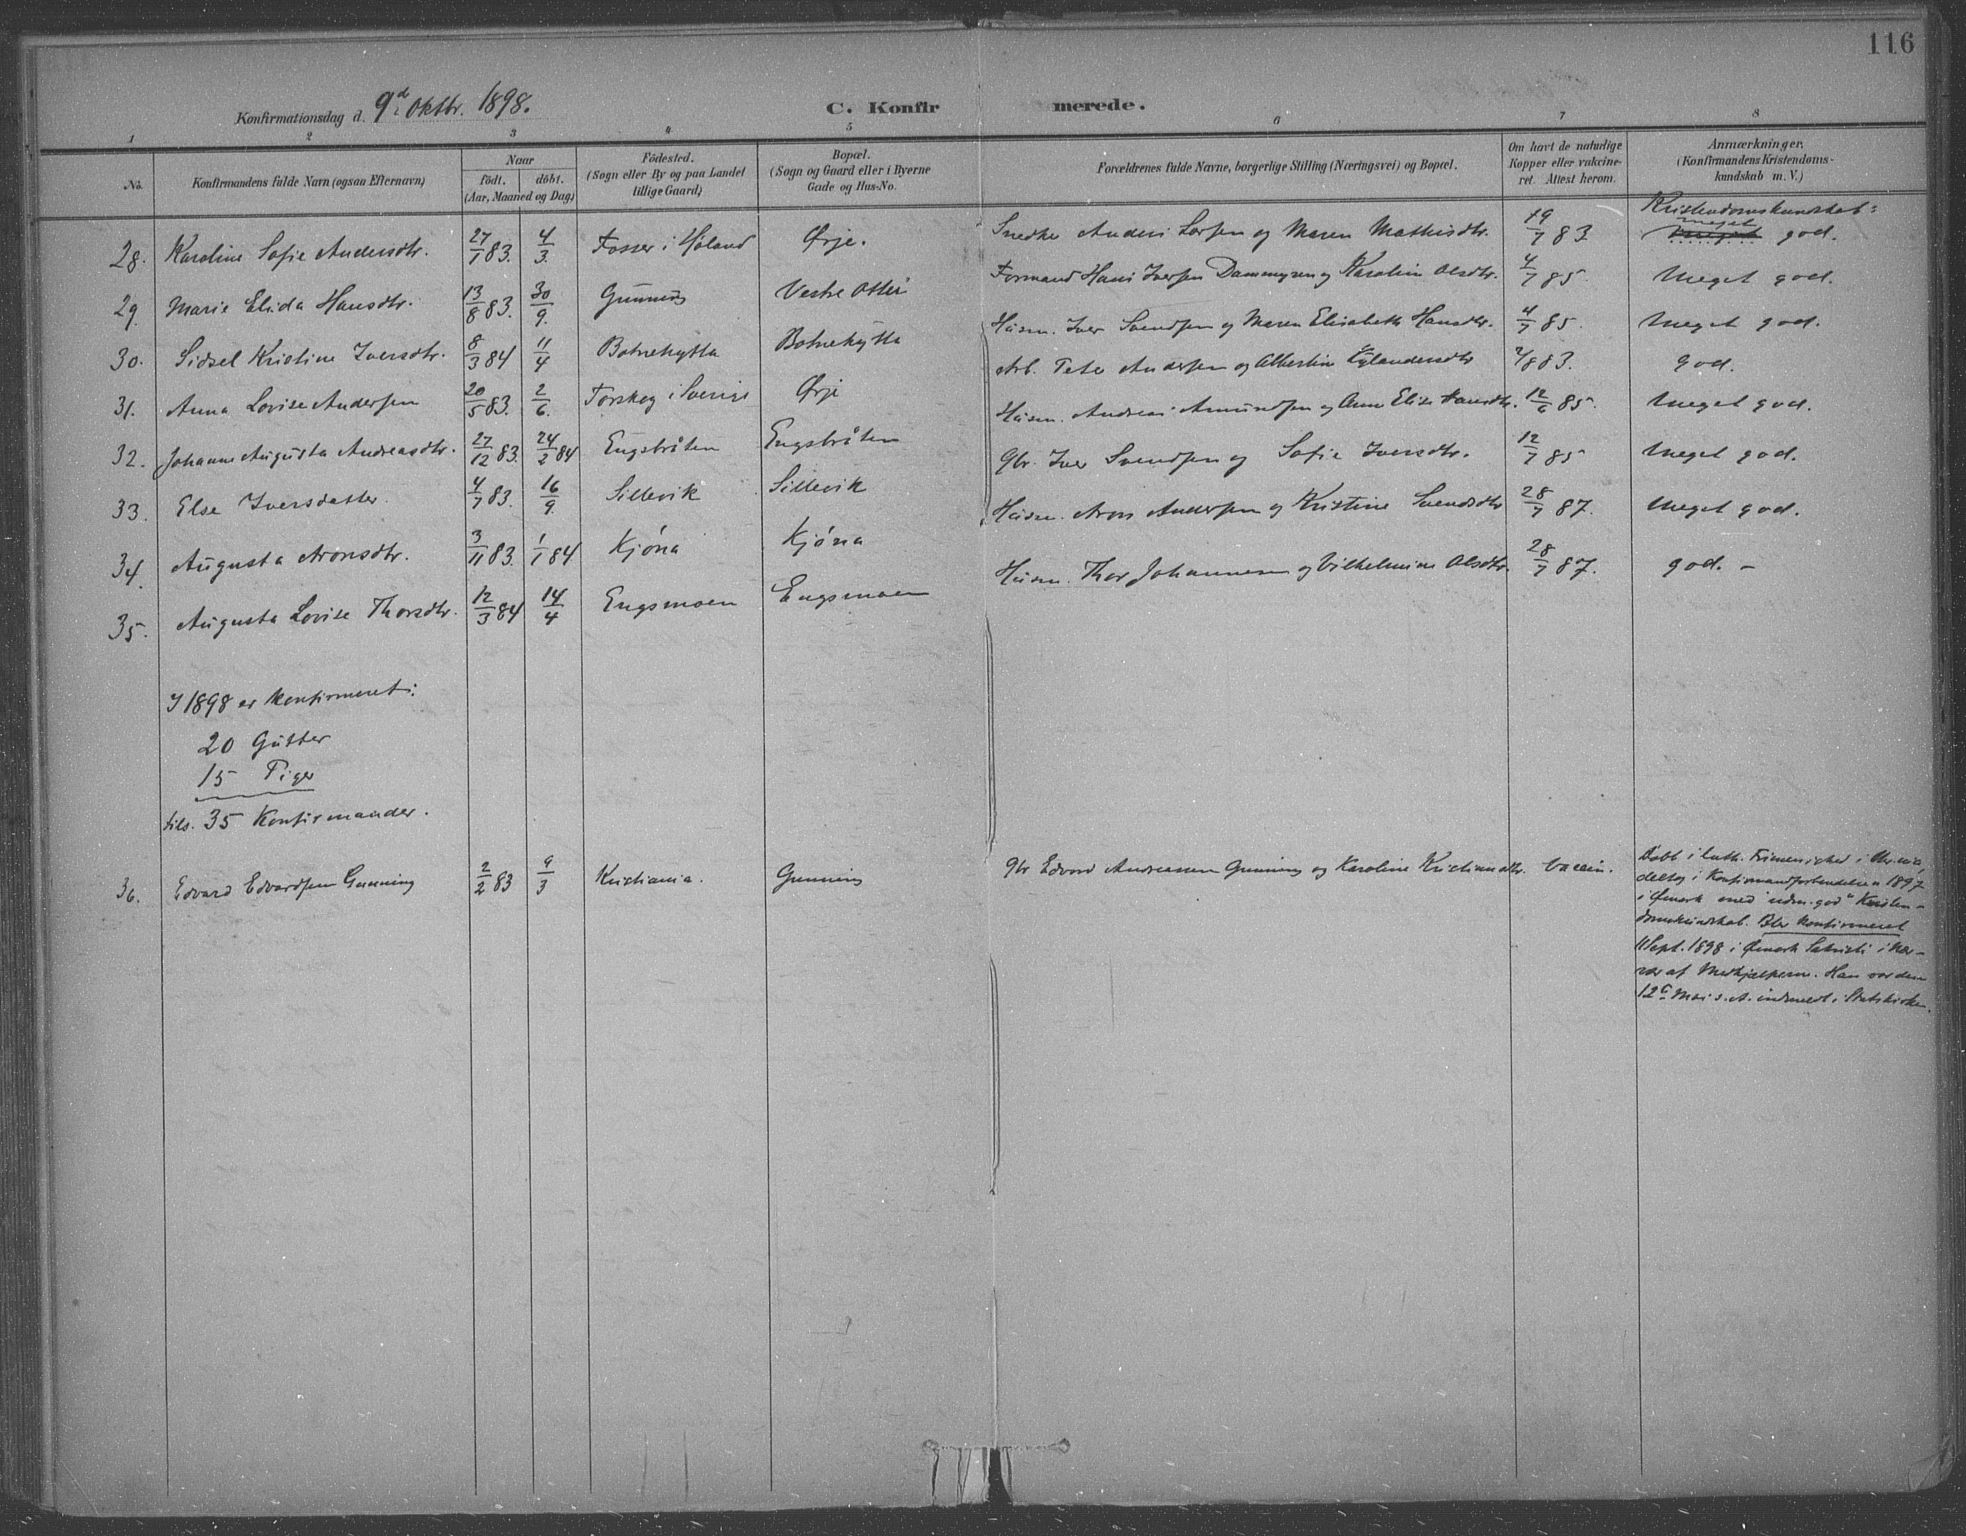 116
Konfirmationsdag d. 9d Oktbr. 1898. C. Konfirmerede.
1 2 3 4 5 6 7 8
No. Konfirmandens fulde Navn (ogsaa Efternavn) Naar født. døbt. (Aar, Maaned og Dag) Fødested. (Sogn eller By og paa Landet tillige Gaard) Bopæl. (Sogn og Gaard eller i Byerne Gade og Hus-No. Forældrenes fulde Navne, borgerlige Stilling (Næringsvei) og Bopæl. Om havt de naturlige Kopper eller vakcineret. Attest herom. Anmærkninger. (Konfirmandens Kristendomskundskab m. V.)
Kristendomskundskab:
28. Karoline Sofie Andersdtr. 27/1 83. 4/3. Fosser i Høland Ørje. Snedker Anders Larsen og Maren Mathisdtr. 19/7 83 meget god.
29. Marie Elida Hansdtr. 13/8 83. 30/9. Gunning Vestre Otteid Formand Hans Iversen Dammyren og Karolin Olsdtr. 4/7 85 Meget god.
30. Sidsel Kristine Iversdtr. 8/3 84 11/4 Botnehytta Botnehytta Husm. Iver Svendsen og Maren Elisabeth Hansdtr. 4/7 85. Meget god.
31. Anna Lovise Andersen 20/5 83. 2/6. Forskog i Sverige Ørje Arb. Peter Andersen og Albertin Kylandersdtr 83. god.
32. Johanne Augusta Andreasdtr. 27/12 83. 24/2 84 Engsbråten Engsbråten Husm. Andreas Amundsen og Anne Elise Hansdtr. 12/6 85. Meget god.
33. Else Iversdatter 4/7 83. 16/9. Sillevik Sillevik Gbr. Iver Svendsen og Sofie Iversdtr. 12/7 85 Meget god.
34. Augusta Aronsdtr. 3/11 83. 1/1 84 Kjøna Kjøna Husm. Aron Andersen og Kristine Svendsdtr 28/7 87. Meget god.
35. Augusta Lovise Thorsdtr. 12/3 84 14/4 Engsmoen Engsmoen Husm. Thor Johannesen og Vilhelmine Olsdtr. 28/7 87. god. -
I 1898 er konfirmeret:
20 Gutter
15 Piger
tils. 35 Konfirmander.
36. Edvard Edvardsen Gunning 2/2 83 9/3 Kristiania. Gunning Gbr Edvard Andreassen Gunning og Karoline Kristiansdtr. Vaccin. Døbt i luth. Frimenighed i Kr.nia,
deltog i Konfirmandforberedelsen 1897
i Ømark med "udm. god" Kristen-
domskundskab. Blev konfirmeret
11 Sept. 1898 i Ømark Sakristi i Nær-
vær af Medhjælperne. Han var den
12te Mai s. A. indmeldt i Statskirken.